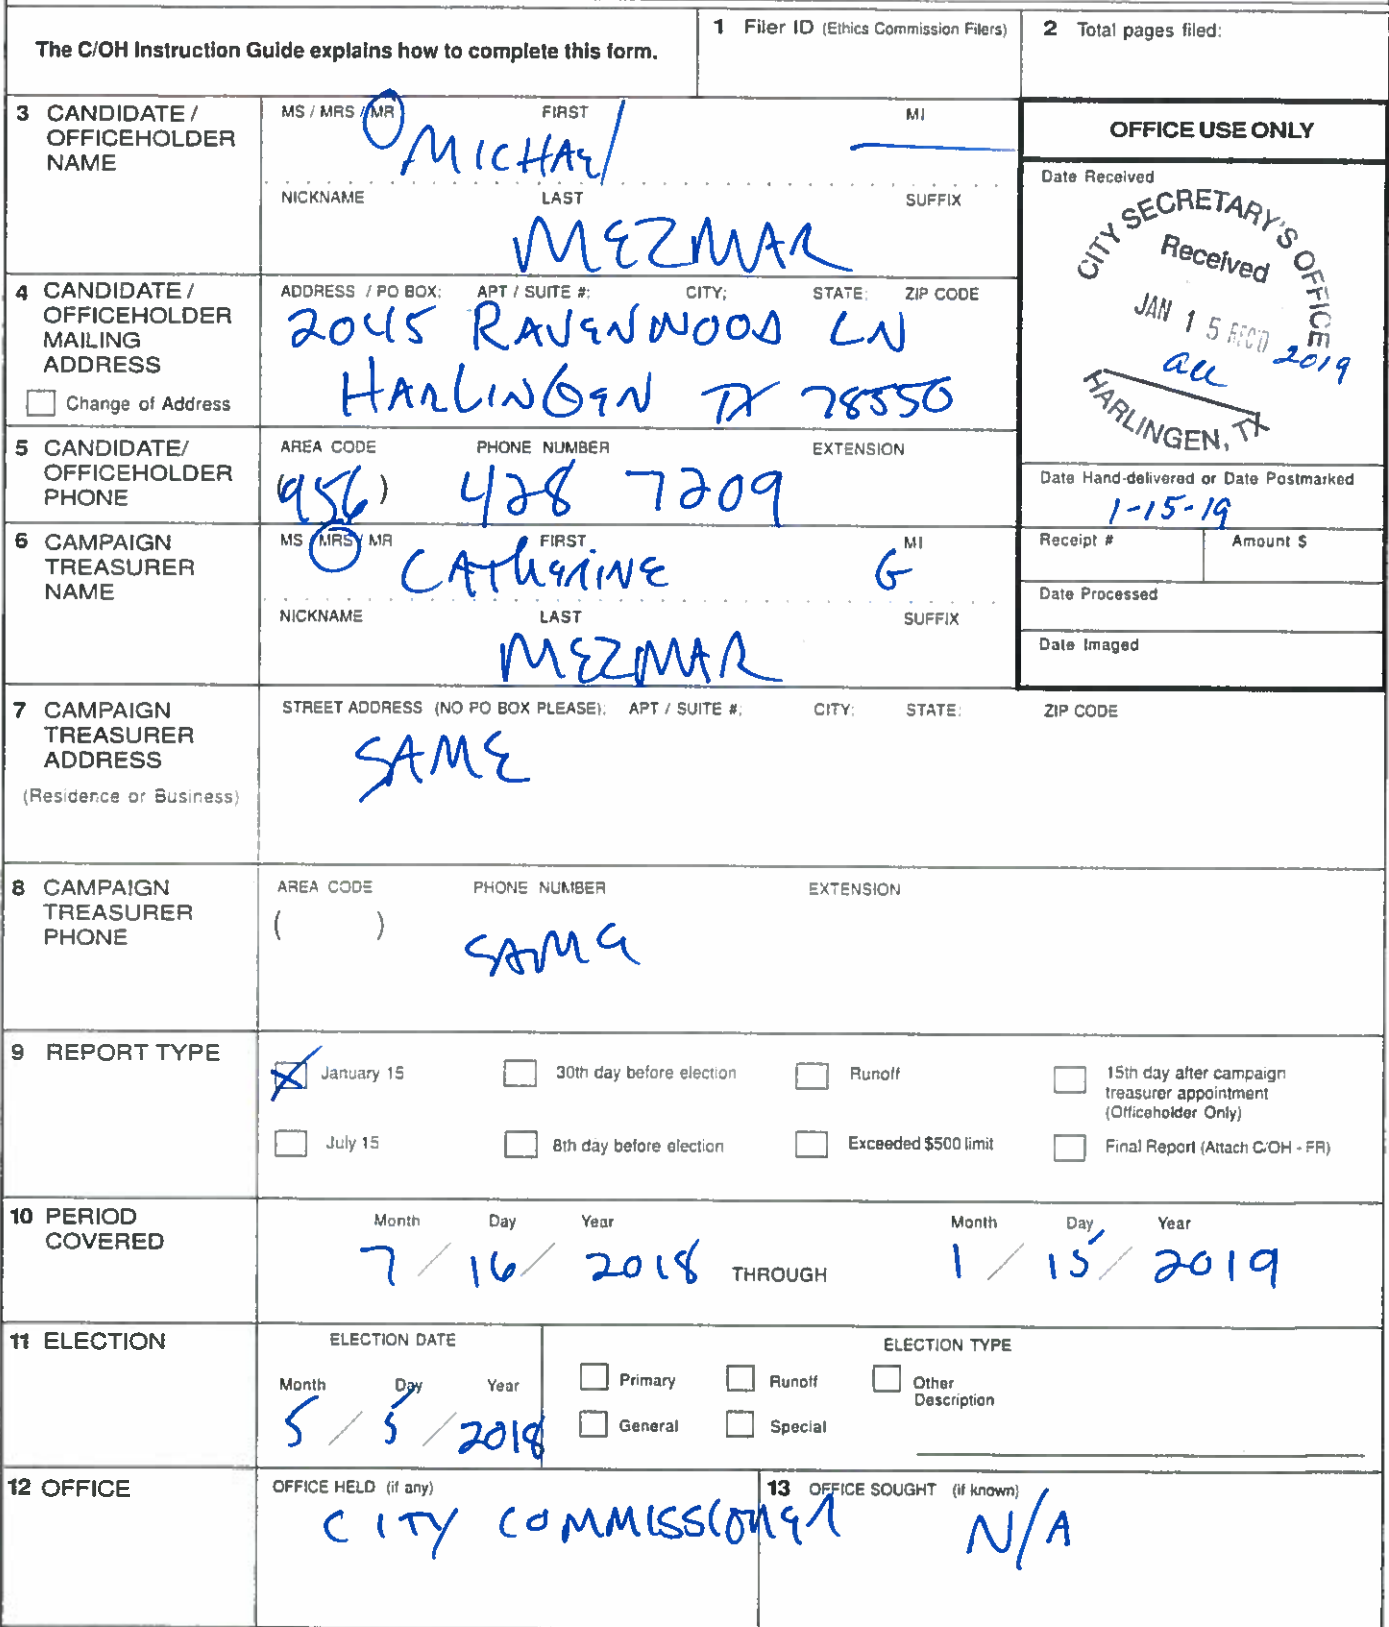 The C/OH Instruction Guide explains how to complete this form.
1 Filer ID (Ethics Commission Filers)
2 Total pages filed:
3 CANDIDATE / OFFICEHOLDER NAME
MS / MRS / MR FIRST MI
MICHAEL
NICKNAME LAST SUFFIX
MEZMAR
OFFICE USE ONLY
Date Received
CITY SECRETARY'S OFFICE
Received
JAN 15 REC'D 2019
HARLINGEN, TX
4 CANDIDATE / OFFICEHOLDER MAILING ADDRESS
Change of Address
ADDRESS / PO BOX; APT / SUITE #; CITY; STATE; ZIP CODE
2045 RAVENWOOD LN
HARLINGEN TX 78550
5 CANDIDATE/ OFFICEHOLDER PHONE
AREA CODE PHONE NUMBER EXTENSION
(956) 428 7209
Date Hand-delivered or Date Postmarked
1-15-19
Receipt # Amount $
Date Processed
Date Imaged
6 CAMPAIGN TREASURER NAME
MS / MRS / MR FIRST MI
CATHERINE G
NICKNAME LAST SUFFIX
MEZMAR
7 CAMPAIGN TREASURER ADDRESS
(Residence or Business)
STREET ADDRESS (NO PO BOX PLEASE); APT / SUITE #; CITY; STATE; ZIP CODE
SAME
8 CAMPAIGN TREASURER PHONE
AREA CODE PHONE NUMBER EXTENSION
( )
SAME
9 REPORT TYPE
January 15
30th day before election
Runoff
15th day after campaign treasurer appointment (Officeholder Only)
July 15
8th day before election
Exceeded $500 limit
Final Report (Attach C/OH - FR)
10 PERIOD COVERED
Month Day Year
7 / 16 / 2018
THROUGH
Month Day Year
1 / 15 / 2019
11 ELECTION
ELECTION DATE
Month Day Year
5 / 5 / 2018
ELECTION TYPE
Primary
Runoff
Other Description
General
Special
12 OFFICE
OFFICE HELD (if any)
CITY COMMISSIONER
13 OFFICE SOUGHT (if known)
N/A